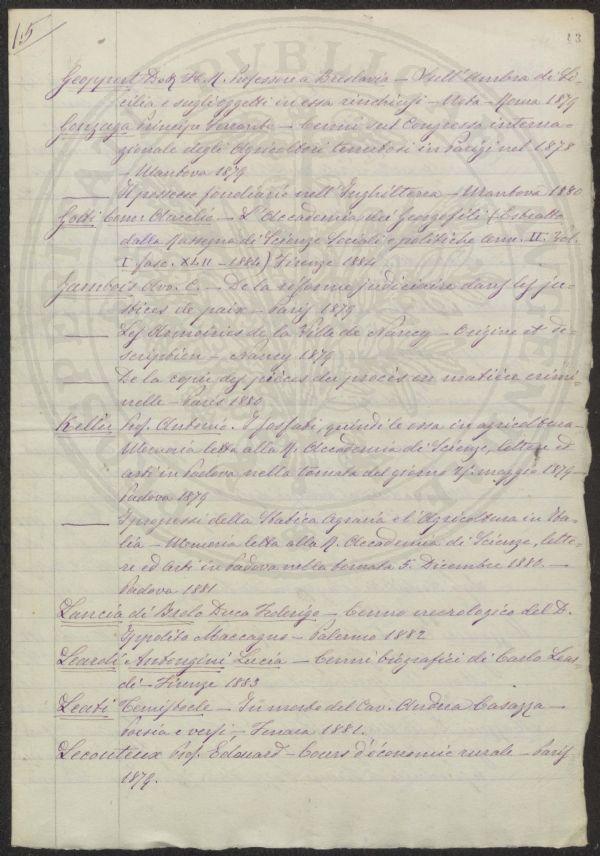 15
43
Geoppert Dott. H. R. Professore a Breslavia – Sull'Ambra di Si-
cilia e sugli oggetti in essa rinchiusi – Nota – Roma 1879
Gonzaga Principe Ferrante – Cenni sul Congresso interna-
zionale degli Agricoltori tenutosi in Parigi nel 1878
– Mantova 1879
—— Il possesso fondiario nell'Inghilterra – Mantova 1880
Gotti Comr. Aurelio – L'Accademia dei Georgofili (Estratto
dalla Rassegna di Scienze Sociali e politiche Ann. II. Vol.
I fasc. XLII – 1884) Firenze 1884
Jambois Avv. C. – De la reforme judiciaire dans les ju-
stices de paix – Paris 1879
—— Les Armoiries de la Ville de Nancy – Origine et de-
scription – Nancy 1879
—— De la copie des pièces du procès en matière crimi-
nelle – Paris 1880
Keller Prof. Antonio. I fosfati, quindi le ossa in agricoltura
Memoria letta alla R. Accademia di Scienze, lettere ed
arti in Padova nella tornata del giorno 25. maggio 1879 –
Padova 1879
—— I progressi della Statica Agraria e l'Agricoltura in Ita-
lia – Memoria letta alla R. Accademia di Scienze, lette-
re ed arti in Padova nella tornata 5. Dicembre 1880. –
Padova 1881
Lancia di Brolo Duca Federigo – Cenno necrologico del D.
Ippolito Maccagno – Palermo 1882
Leardi Antongini Lucia – Cenni biografici di Carlo Lear-
di – Firenze 1883
Leati Temistocle – In morte del Cav. Andrea Casazza –
Poesia e versi – Ferrara 1881.
Lecouteux Prof. Edouard – Cours d'économie rurale – Paris
1879.